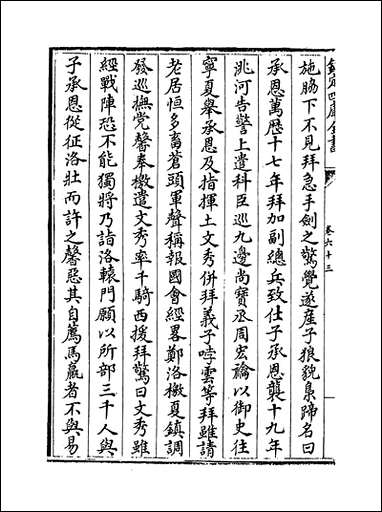 欽定四庫全書
卷六十三
施脇下不見拜急手劍之驚覺遂産子狼貌梟蹄名曰
承恩萬厯十七年拜加副總兵致仕子承恩襲十九年
洮河告警上遣科臣巡九邊尚寶丞周宏禴以御史往
寧夏舉承恩及指揮土文秀併拜義子哱雲等拜雖請
老居恒多畜蒼頭軍聲稱報國會經畧鄭洛檄夏鎮調
發巡撫党馨奉檄遣文秀率千騎西援拜驚曰文秀雖
經戰陣恐不能獨將乃詣洛轅門願以所部三千人與
子承恩從征洛壯而許之馨惡其自薦馬羸者不與易